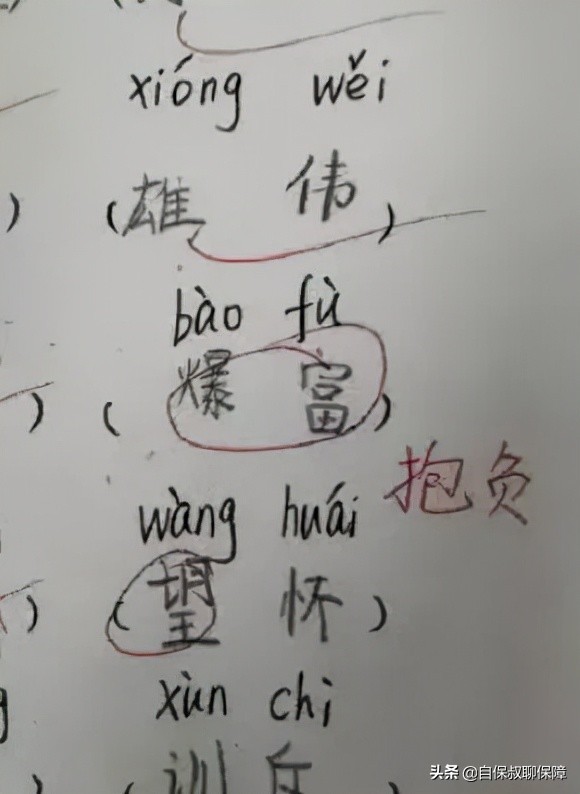 xióng wěi
) (雄 伟)
bào fù
) (爆 富)
抱负
wàng huái
) (望 怀)
xùn chì
) (训 斥)
头条 @自保叔聊保障